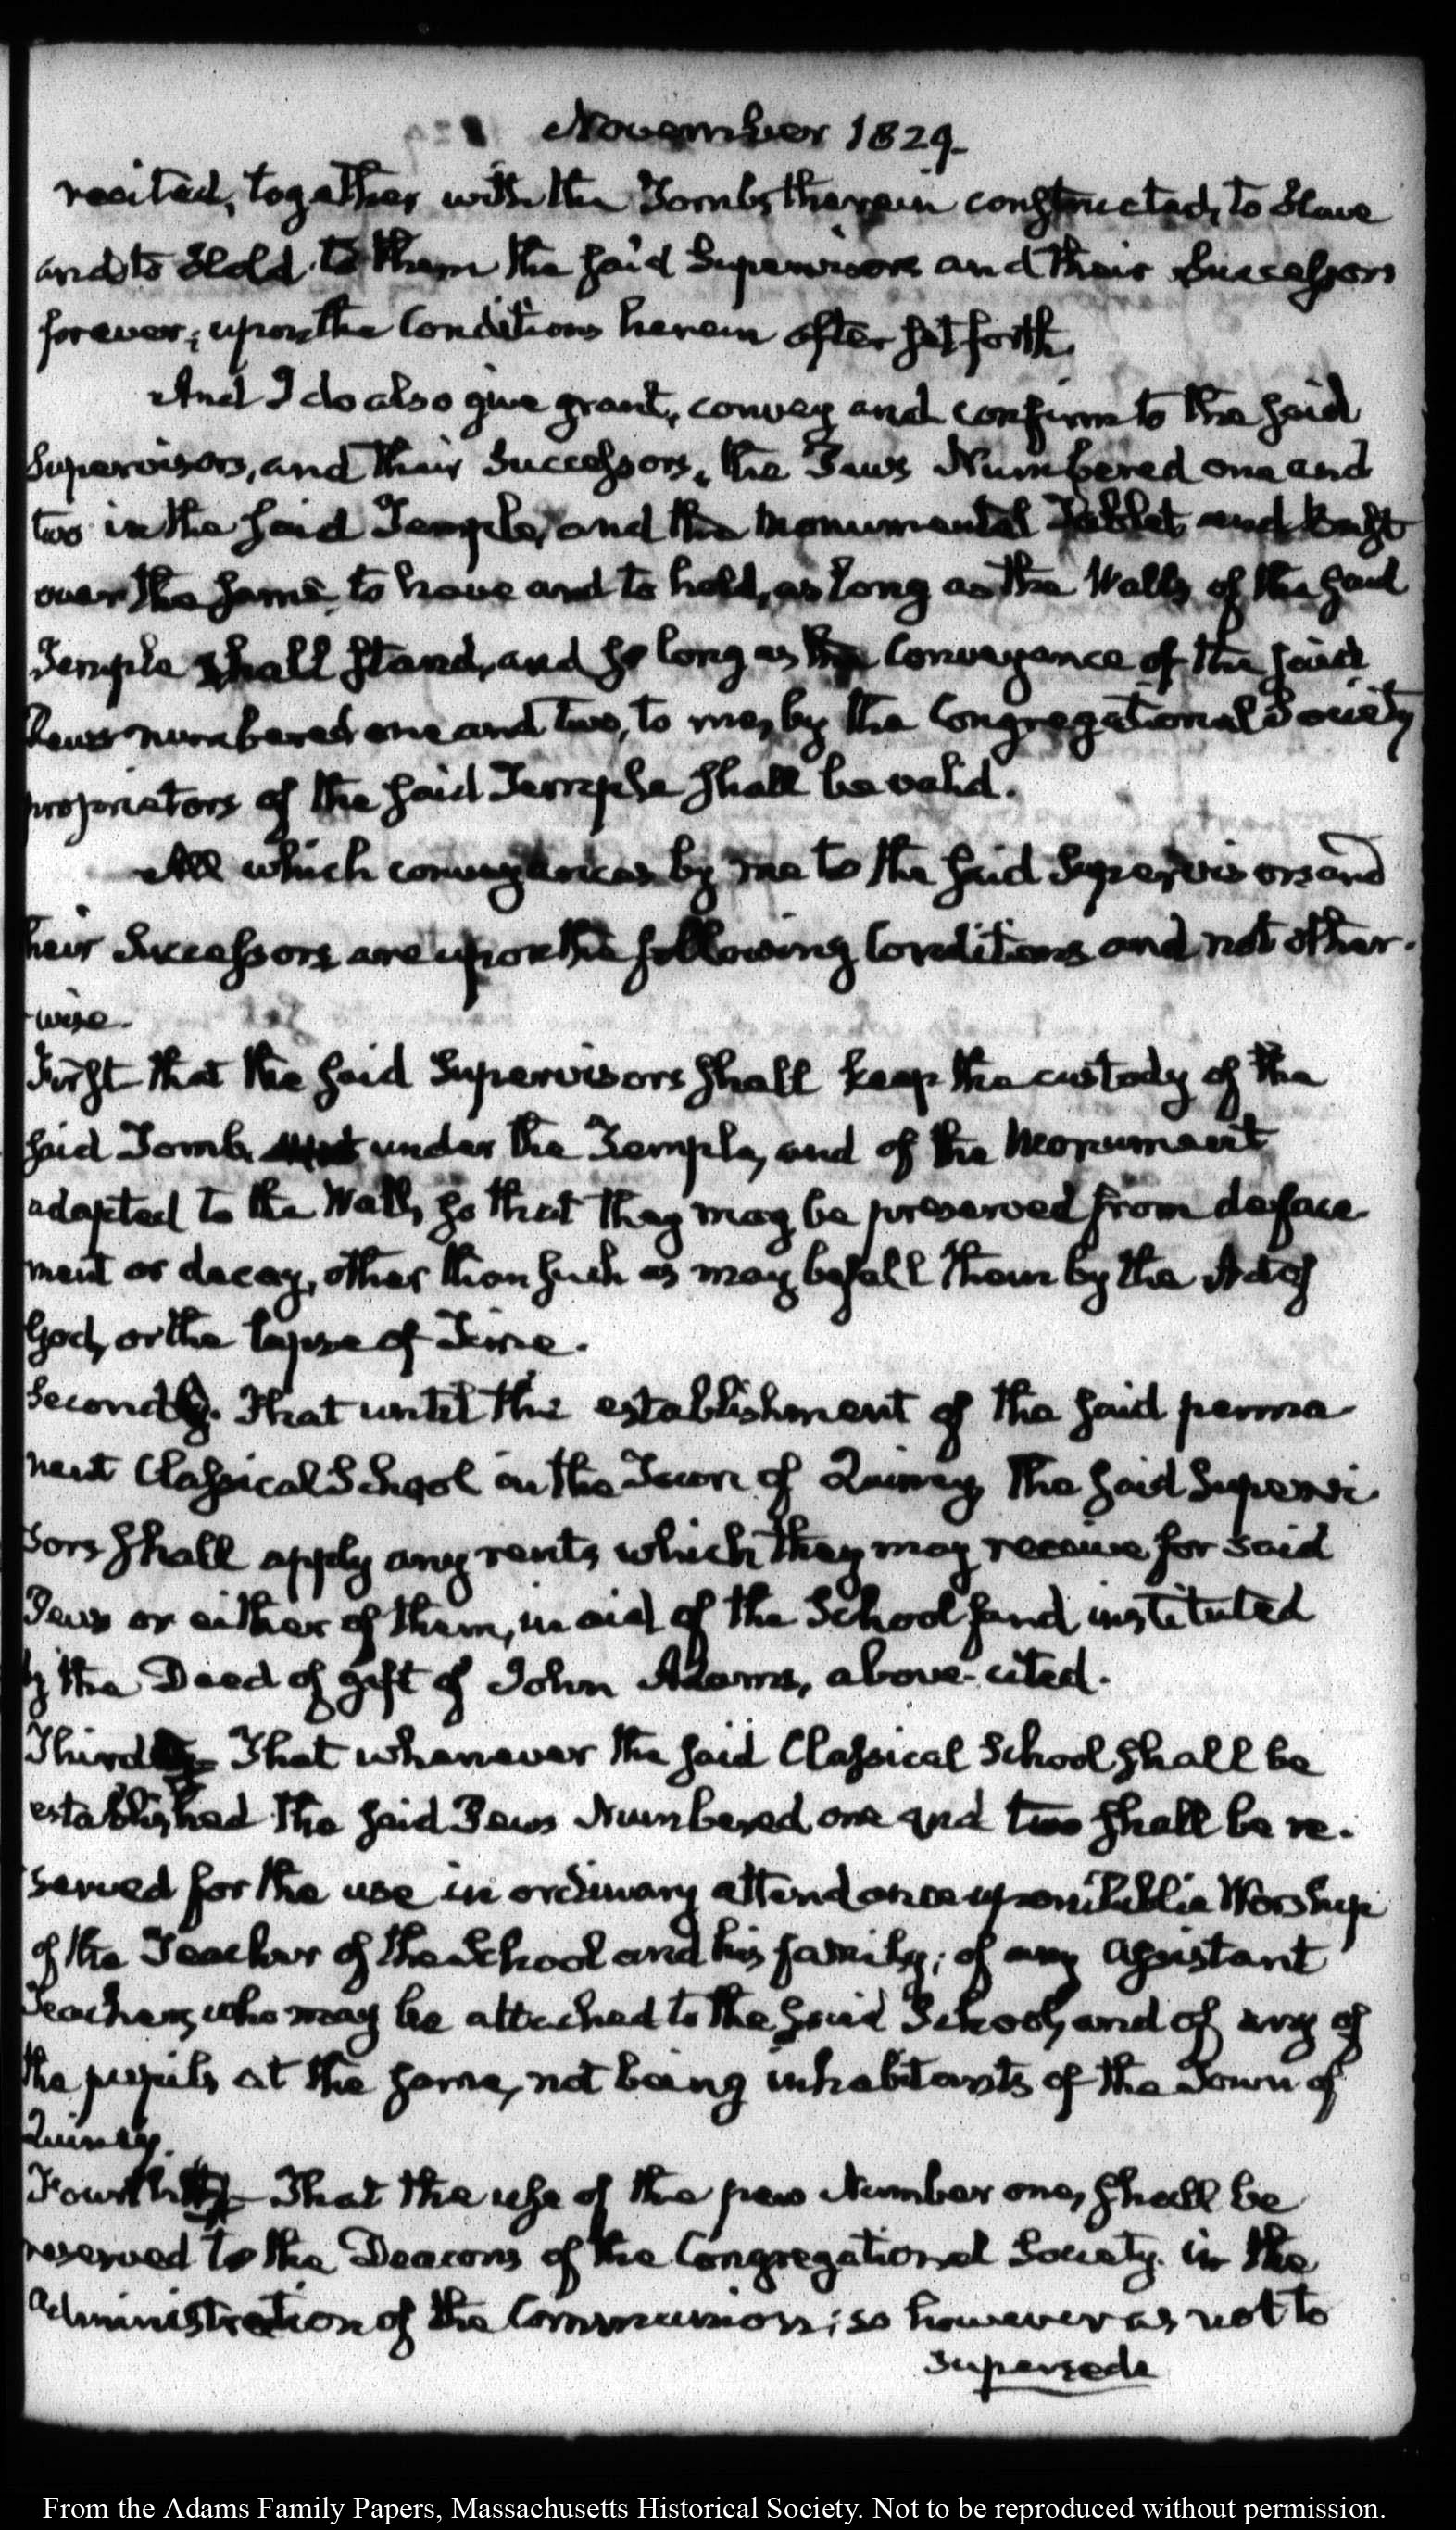 November 1829.
recited, together with the Tombs therein constructed, to Have
and to Hold to them the said Supervisors and their Successors
forever; upon the Conditions herein after set forth.
And I do also give grant, convey and confirm to the said
Supervisors, and their Successors, the Pews Numbered one and
two in the said Temple, and the Monumental Tablet and Bust
over the same, to have and to hold, as long as the Walls of the said
Temple shall stand, and so long as the Conveyance of the said
Pews numbered one and two, to me, by the Congregational Society
proprietors of the said Temple shall be valid.
All which conveyances by me to the said Supervisors and
their Successors are upon the following Conditions and not other-
-wise.
First that the said Supervisors shall keep the custody of the
said Tomb under the Temple, and of the Monument
adapted to the Wall, so that they may be preserved from deface-
ment or decay, other than such as may befall them by the Act of
God, or the lapse of Time.
Secondly. That until the establishment of the said perma-
nent Classical School in the Town of Quincy, the said Supervi-
sors shall apply any rents which they may receive for said
Pews or either of them, in aid of the School fund instituted
by the Deed of gift of John Adams, above-cited.
Third That whenever the said Classical School shall be
established the said Pews Numbered one and two shall be re-
served for the use in ordinary attendance upon Public Worship
of the Teacher of the School and his family; of any assistant
Teacher, who may be attached to the said School, and of any of
the pupils at the same, not being inhabitants of the Town of
Quincy.
Fourth That the use of the pew Number one, shall be
reserved to the Deacons of the Congregational Society in the
administration of the Communion; so however as not to
supersede
From the Adams Family Papers, Massachusetts Historical Society. Not to be reproduced without permission.